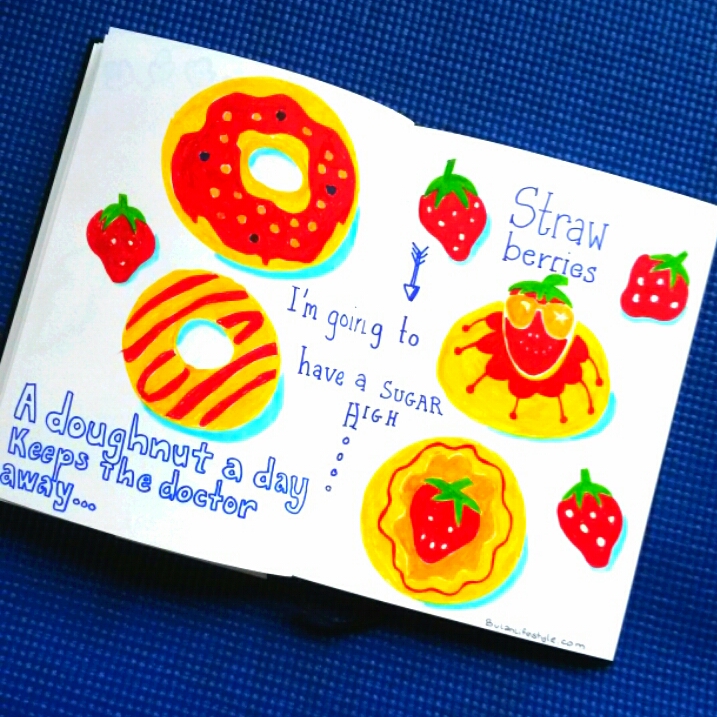 A doughnut a day
Keeps The doctor
away...
I'm going to
have a SUGAR
HIGH
Straw
berries
BulanLifestyle.com